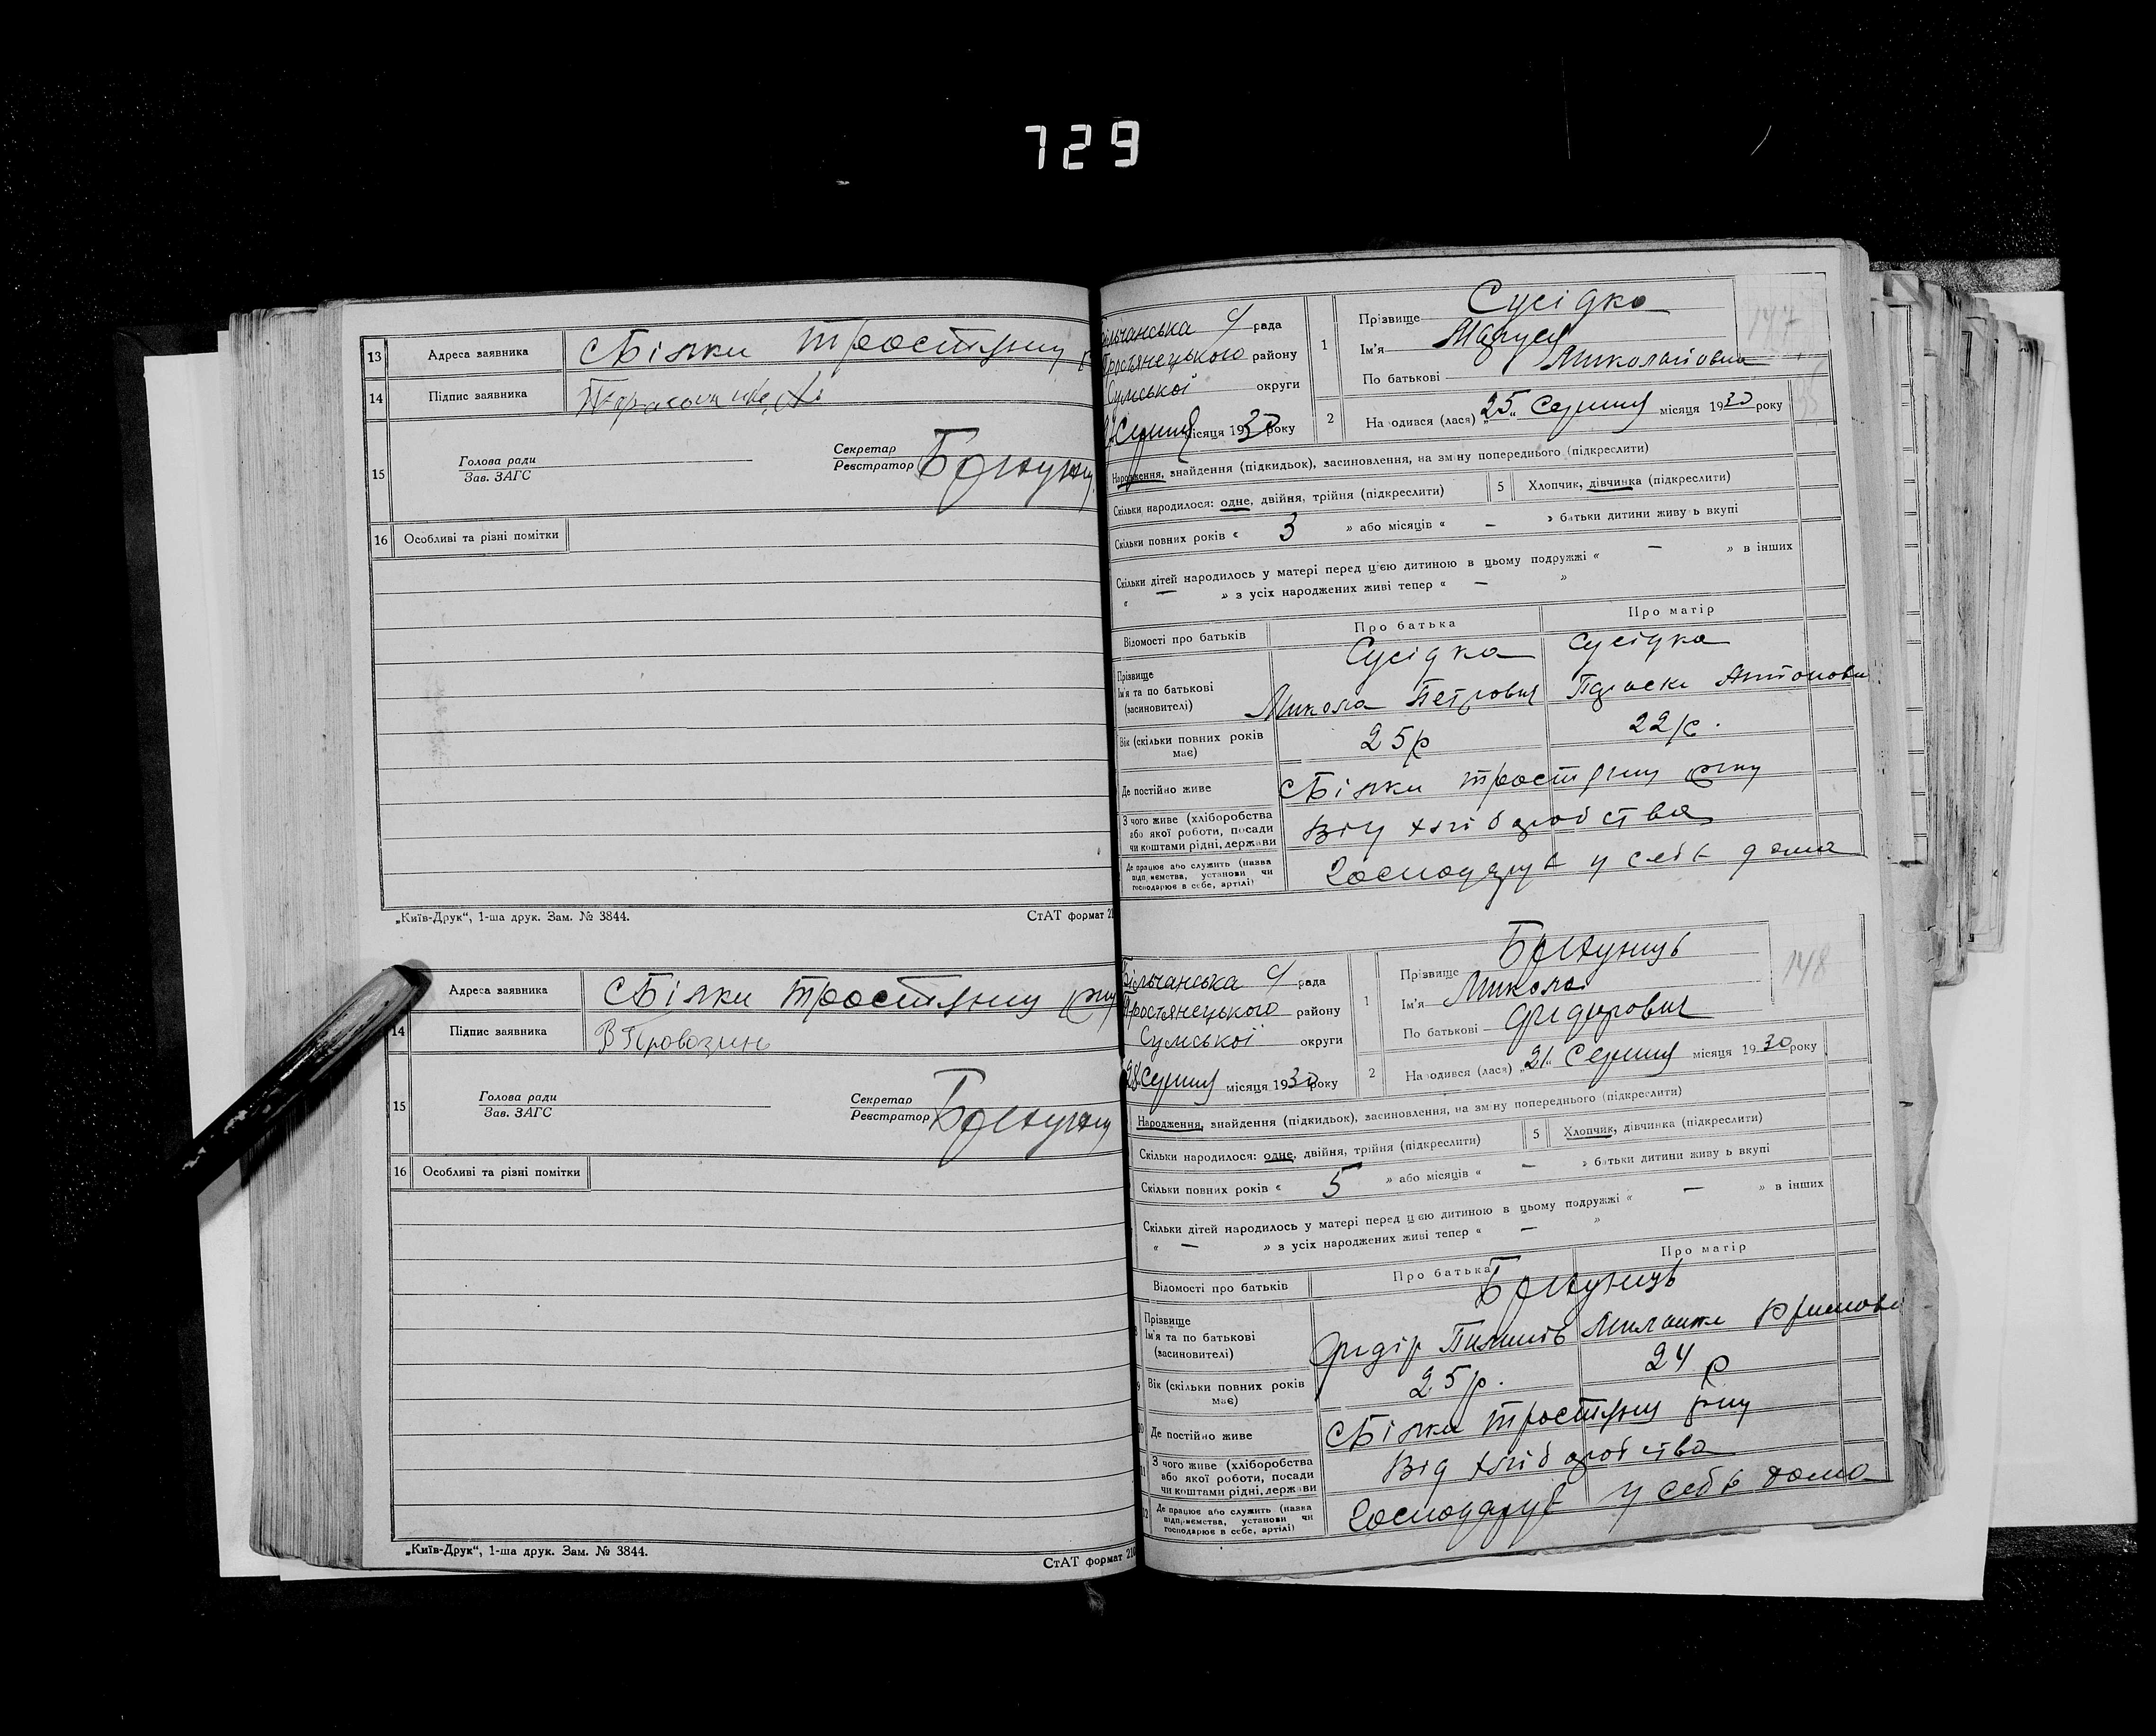 729
13 Адреса заявника с Білки Тростянец
14 Підпис заявника
15 Голова ради
Зав. ЗАГС
Секретар
Реєстратор
16 Особливі та різні помітки
„Київ-Друк“, 1-ша друк. Зам. № 3844.
СтАТ формат 21
Адреса заявника с Білки Тростянец рну
14 Підпис заявника
15 Голова ради
Зав. ЗАГС
Секретар
Реєстратор
16 Особливі та різні помітки
„Київ-Друк“, 1-ша друк. Зам. № 3844.
СтАТ формат 210
більчанська с/рада
Тростянецького району
Сумської округи
Серпня місяця 1930 року
1 Прізвище Сусідко
Ім'я Маруся
По батькові Миколаївна
147
2 Народився (лася) „25„ Серпня місяця 1930 року
Народження, знайдення (підкидьок), засиновлення, на зміну попереднього (підкреслити)
Скільки народилося: одне, двійня, трійня (підкреслити) 5 Хлопчик, дівчинка (підкреслити)
Скільки повних років « 3 » або місяців « – » батьки дитини живуть вкупі
Скільки дітей народилось у матері перед цією дитиною в цьому подружжі « – » в інших
« – » з усіх народжених живі тепер « – »
Відомості про батьків Про батька Про матір
Прізвище
Ім'я та по батькові
(засиновителі)
Сусідка Сусідка
Микола Петрович Параска Антоновн
Вік (скільки повних років має) 25р 22р.
Де постійно живе с Білки Тростянец рну
З чого живе (хліборобства
або якої роботи, посади
чи коштами рідні, держави
Від хліборобства
Де працює або служить (назва
підприємства, установи чи
господарює в себе, артілі)
Господарує у себе дома
Більчанська с/рада
Тростянецького району
Сумської округи
28 Серпня місяця 1930 року
1 Прізвище
Ім'я Микола
По батькові Федорович
148
2 Народився (лася) „21„ Серпня місяця 1930 року
Народження, знайдення (підкидьок), засиновлення, на зміну попереднього (підкреслити)
Скільки народилося: одне, двійня, трійня (підкреслити) 5 Хлопчик, дівчинка (підкреслити)
Скільки повних років « 5 » або місяців « – » батьки дитини живуть вкупі
Скільки дітей народилось у матері перед цією дитиною в цьому подружжі « – » в інших
« – » з усіх народжених живі тепер « – »
Відомості про батьків Про батька Про матір
Прізвище
Ім'я та по батькові
(засиновителі)
Федір
Вік (скільки повних років має) 25р. 24 р
Де постійно живе с Білки Тростянец рну
З чого живе (хліборобства
або якої роботи, посади
чи коштами рідні, держави
Від хліборобства
Де працює або служить (назва
підприємства, установи чи
господарює в себе, артілі)
Господарує у себе дома